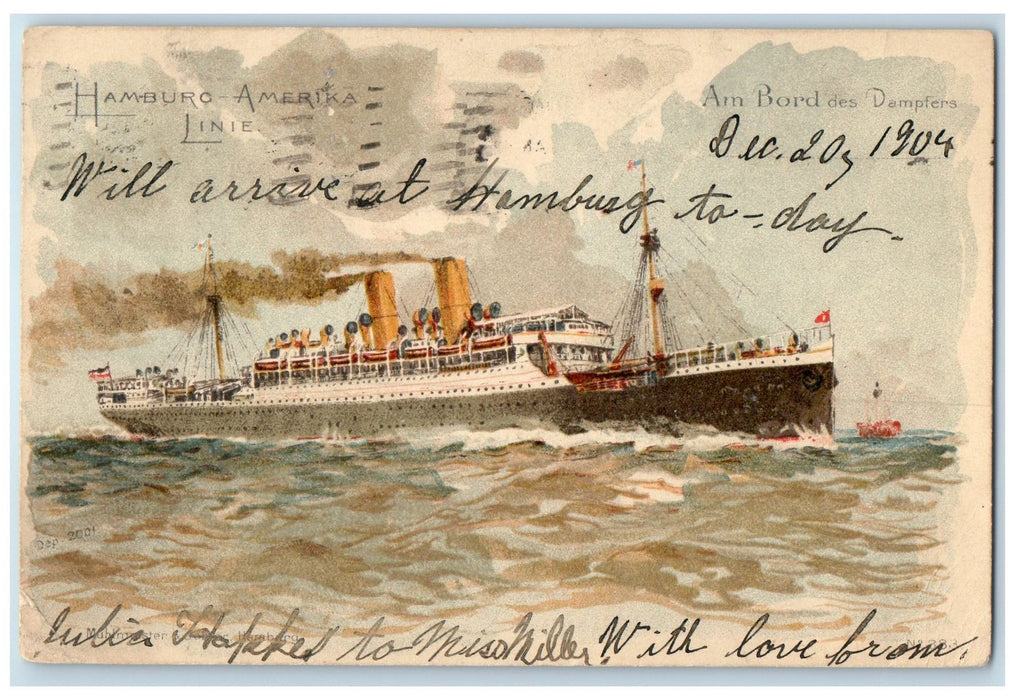 HAMBURG-AMERIKA
LINIE.
Am Bord des Dampfers
Dec. 20, 1904
Will arrive at Hamburg to-day.
Dep. 2001.
Mühlmeister Hamburg
Julia to Miss Miller. With love from,